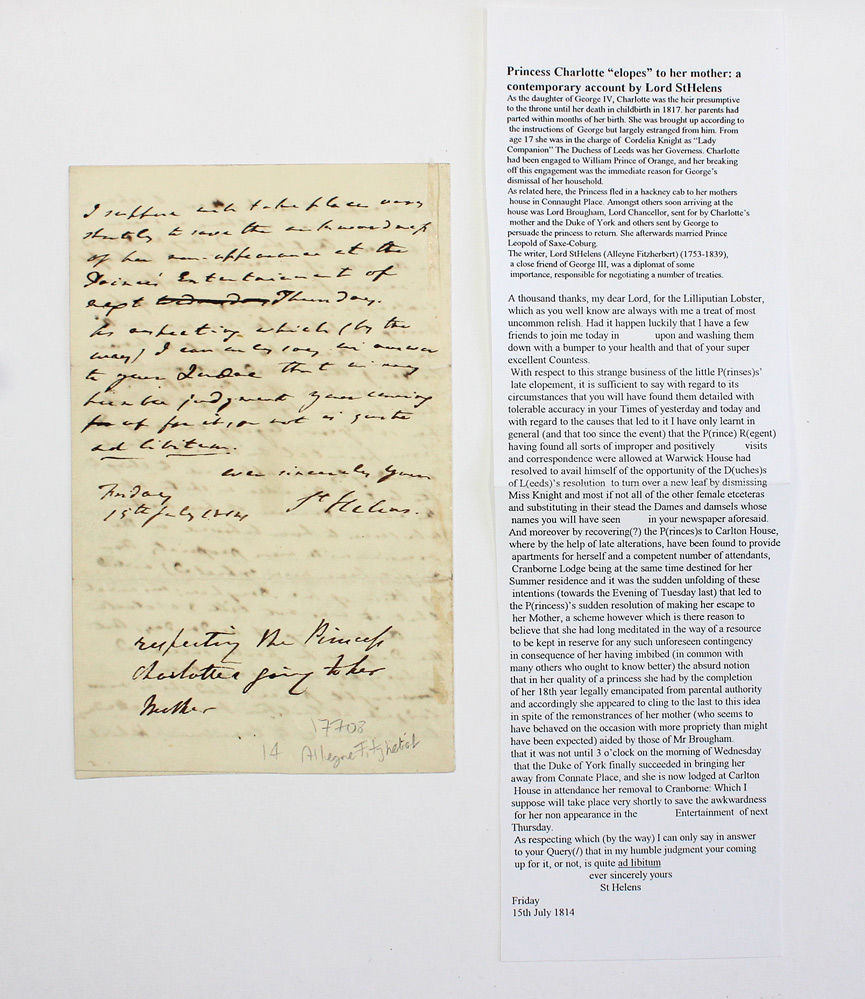 I suppose will take place very
shortly to save the awkwardness
of her non-appearance at the
Prince's Entertainment of
next Thursday.
As respecting which (by the
way) I can only say in answer
to your that in my
humble judgment your coming
up for it, or not is quite
ad libitum.
ever sincerely yours
Friday
15th July 1814 St Helens.
respecting the Princess
Charlotte's going to her
Mother
17703
14 Alleyne Fitzherbert
Princess Charlotte “elopes” to her mother: a
contemporary account by Lord StHelens
As the daughter of George IV, Charlotte was the heir presumptive
to the throne until her death in childbirth in 1817. her parents had
parted within months of her birth. She was brought up according to
the instructions of George but largely estranged from him. From
age 17 she was in the charge of Cordelia Knight as “Lady
Companion” The Duchess of Leeds was her Governess. Charlotte
had been engaged to William Prince of Orange, and her breaking
off this engagement was the immediate reason for George’s
dismissal of her household.
As related here, the Princess fled in a hackney cab to her mothers
house in Connaught Place. Amongst others soon arriving at the
house was Lord Brougham, Lord Chancellor, sent for by Charlotte’s
mother and the Duke of York and others sent by George to
persuade the princess to return. She afterwards married Prince
Leopold of Saxe-Coburg.
The writer, Lord StHelens (Alleyne Fitzherbert) (1753-1839),
a close friend of George III, was a diplomat of some
importance, responsible for negotiating a number of treaties.
A thousand thanks, my dear Lord, for the Lilliputian Lobster,
which as you well know are always with me a treat of most
uncommon relish. Had it happen luckily that I have a few
friends to join me today in upon and washing them
down with a bumper to your health and that of your super
excellent Countess.
With respect to this strange business of the little P(rinses)s’
late elopement, it is sufficient to say with regard to its
circumstances that you will have found them detailed with
tolerable accuracy in your Times of yesterday and today and
with regard to the causes that led to it I have only learnt in
general (and that too since the event) that the P(rince) R(egent)
having found all sorts of improper and positively visits
and correspondence were allowed at Warwick House had
resolved to avail himself of the opportunity of the D(uches)s
of L(eeds)’s resolution to turn over a new leaf by dismissing
Miss Knight and most if not all of the other female etceteras
and substituting in their stead the Dames and damsels whose
names you will have seen in your newspaper aforesaid.
And moreover by recovering(?) the P(rinces)s to Carlton House,
where by the help of late alterations, have been found to provide
apartments for herself and a competent number of attendants,
Cranborne Lodge being at the same time destined for her
Summer residence and it was the sudden unfolding of these
intentions (towards the Evening of Tuesday last) that led to
the P(rincess)’s sudden resolution of making her escape to
her Mother, a scheme however which is there reason to
believe that she had long meditated in the way of a resource
to be kept in reserve for any such unforeseen contingency
in consequence of her having imbibed (in common with
many others who ought to know better) the absurd notion
that in her quality of a princess she had by the completion
of her 18th year legally emancipated from parental authority
and accordingly she appeared to cling to the last to this idea
in spite of the remonstrances of her mother (who seems to
have behaved on the occasion with more propriety than might
have been expected) aided by those of Mr Brougham.
that it was not until 3 o’clock on the morning of Wednesday
that the Duke of York finally succeeded in bringing her
away from Connate Place, and she is now lodged at Carlton
House in attendance her removal to Cranborne: Which I
suppose will take place very shortly to save the awkwardness
for her non appearance in the Entertainment of next
Thursday.
As respecting which (by the way) I can only say in answer
to your Query(/) that in my humble judgment your coming
up for it, or not, is quite ad libitum
ever sincerely yours
St Helens
Friday
15th July 1814